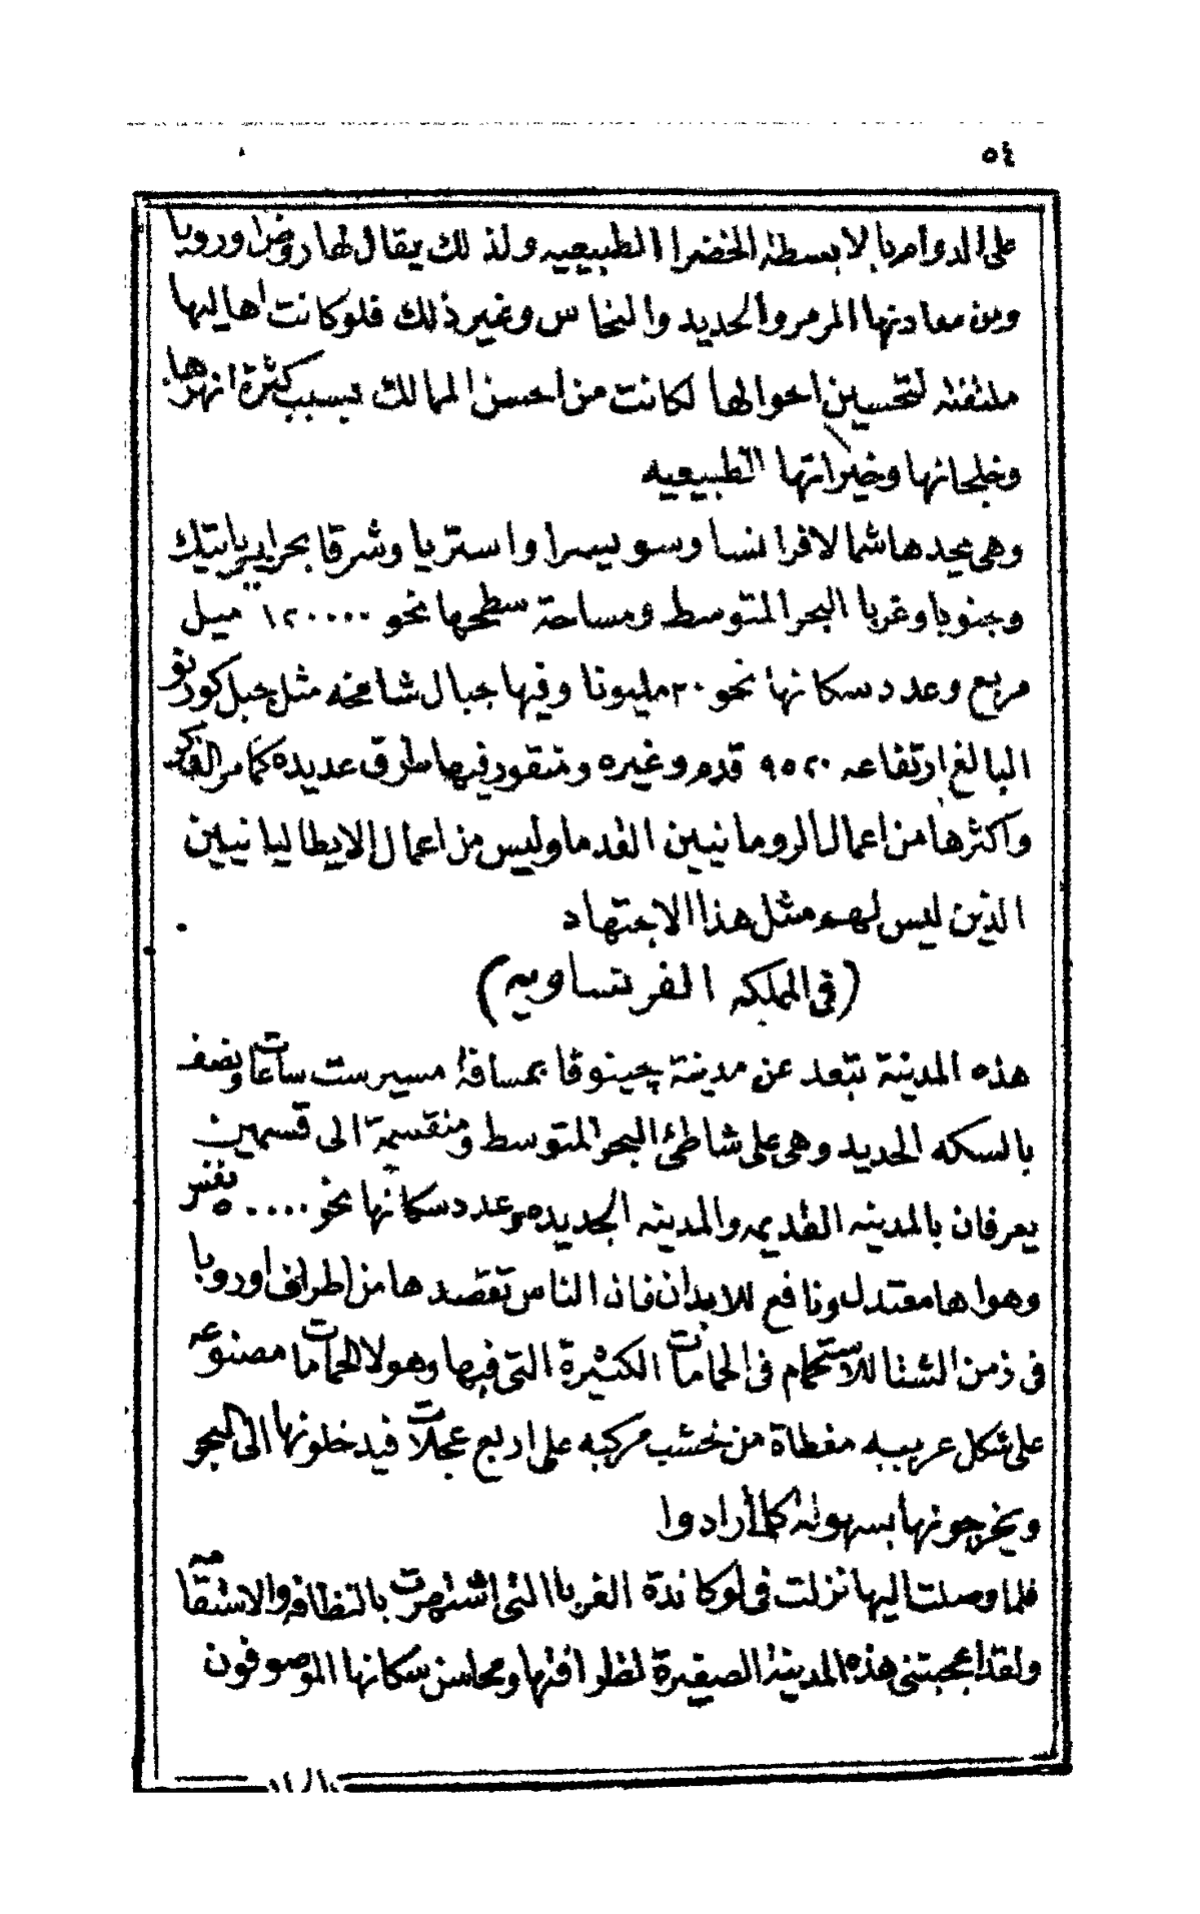 ٥٤
على الدوام ربا لا بسطة الخضرا الطبيعيه ولذ لك يقال لها روض اوروبا
ومن معادنها المرمر والحديد والنحاس وغير ذلك فلو كانت اهاليها
ملتفته لتحسين احوالها لكانت من احسن الممالك بسبب كثرة انهرها
وخلجانها وخيراتها الطبيعيه
وهى يحدها شمالا فرانسا وسويسرا واستريا وشرقا بحر ادرياتيك
وجنوبا وغربا البحر المتوسط ومساحة سطحها نحو ١٢٠٠٠٠ ميل
مربع وعدد سكانها نحو ٢٠ مليونا وفيها جبال شامخه مثل جبل كورنو
البالغ ارتفاعه ٩٥٢٠ قدم وغيره ومنقور فيها طرق عديده كما مر الذكر
واكثرها من اعمال الرومانيين القدما وليس من اعمال الايطاليانيين
الذين ليس لهم مثل هذا الاجتهاد
(فى المملكه الفرنساويه)
هذه المدينة تبعد عن مدينة چينوڤا بمسافة مسير ست ساعات ونصف
بالسكه الحديد وهى على شاطئ البحر المتوسط ومنقسمة الى قسمين
يعرفان بالمدينه القديمه والمدينه الجديده وعدد سكانها نحو ٥٠٠٠٠ نفس
وهواها معتدل ونافع للابدان فان الناس تقصدها من اطراف اوروبا
فى زمن الشتا للاستحمام فى الحمامات الكثيرة التى فيها وهولا الحمامات مصنوعه
على شكل عربيه مغطاة من خشب مركبه على اربع عجلات فيدخلونها الى البحر
ويخرجونها بسهولة كلما أرادوا
فلما وصلت اليها نزلت فى لوكاندة الغربا التى اشتهرت بالنظافه والاستقا
ولقد اعجبتنى هذه المدينة الصغيرة لظرافتها ومحاسن سكانها الموصوفون